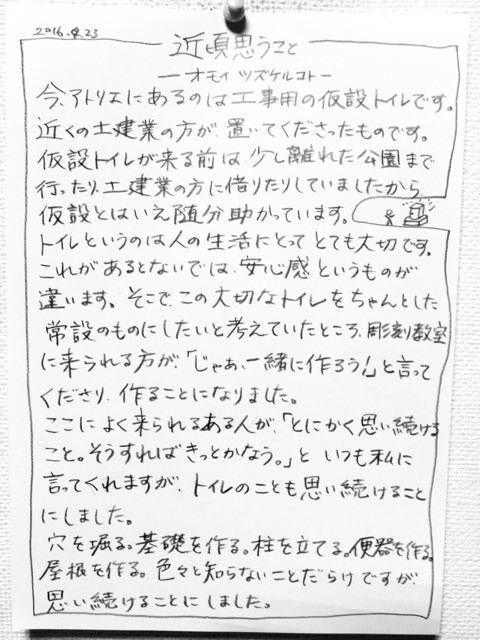 2016.4.23
近頃思うこと
ーオモイツズケルコトー
今、アトリエにあるのは工事用の仮設トイレです。
近くの土建業の方が、置いてくださったものです。
仮設トイレが来る前は、少し離れた公園まで
行ったり、土建業の方に借りたりしていましたから
仮設とはいえ随分助かっています。
トイレというのは人の生活にとってとても大切です。
これがあるとないでは、安心感というものが
違います。そこで、この大切なトイレをちゃんとした
常設のものにしたいと考えていたところ、彫刻教室
に来られる方が、「じゃあ、一緒に作ろう!」と言って
くださり、作ることになりました。
ここによく来られるある人が、「とにかく思い続ける
こと。そうすればきっとかなう。」と いつも私に
言ってくれますが、トイレのことも思い続けること
にしました。
穴を掘る。基礎を作る。柱を立てる。便器を作る。
屋根を作る。色々と知らないことだらけですが、
思い続けることにしました。